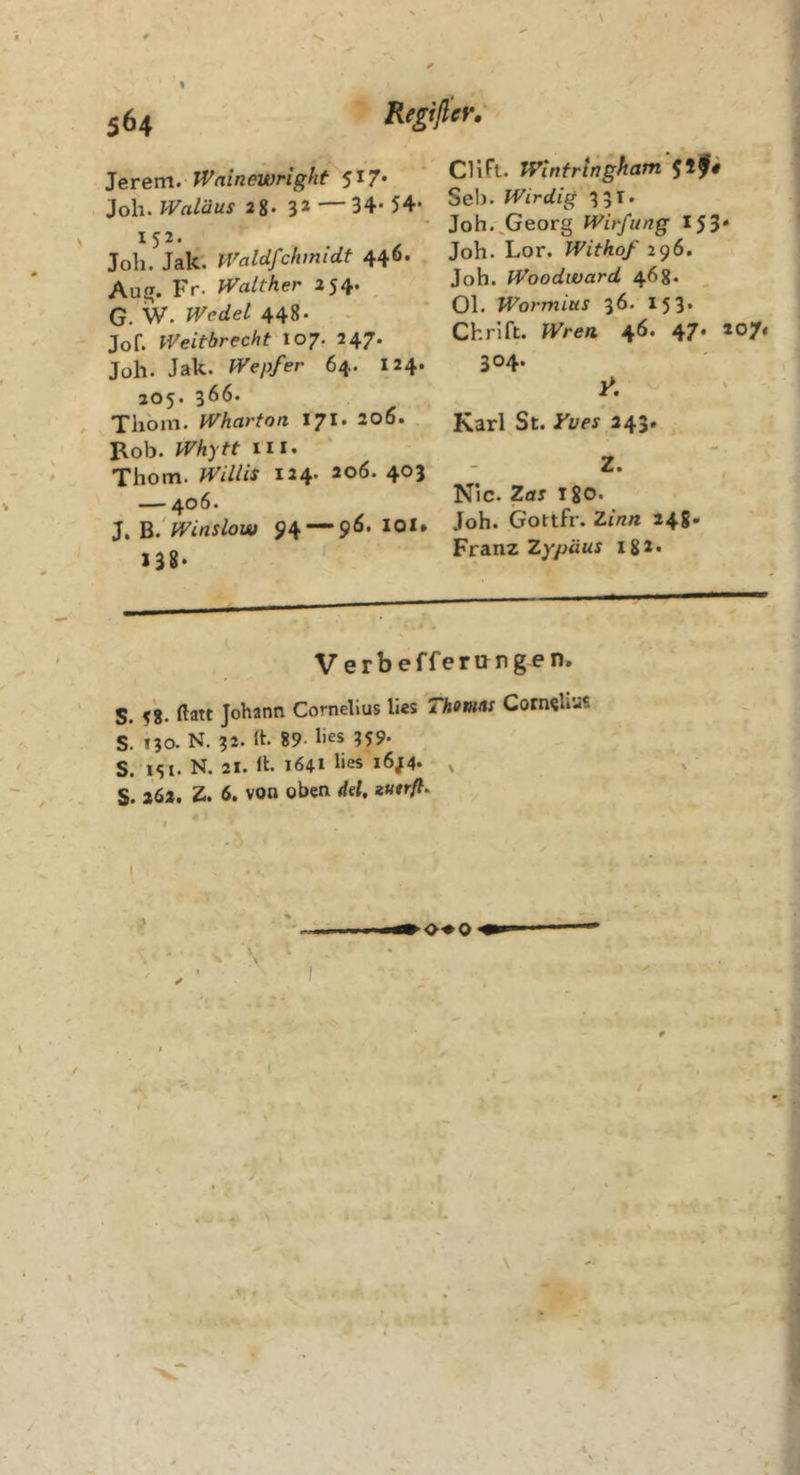 564
Regiſter.
Jerem. Wainewright 517.
Joh. Waläus 28. 32 — 34. 54.
152.
Joh. Jak. Waldſchmidt 446.
Aug. Fr. Walther 254.
G. W. Wedel 448.
Joſ. Weitbrecht 107. 247.
Joh. Jak. Wepfer 64. 124.
205. 366.
Thom. Wharton 171. 206.
Rob. Whytt 111.
Thom. Willis 124. 206. 403
— 406.
J. B. Winslow 94 — 96. 101.
138.
Clift. Wintringham
Seb. Wirdig 331.
Joh. Georg Wirſung 153.
Joh. Lor. Withof 296.
Joh. Woodward 468.
Ol. Wormius 36. 153.
Chriſt. Wren 46. 47. 207.
304.
Y.
Karl St. Yves 243.
Z.
Nic. Zas 180.
Joh. Gottfr. Zinn 248.
Franz Zypäus 182.
Verbeſſerungen.
S. 58. ſtatt Johann Cornelius lies Thomas Cornelius
S. 130. N. 32. ſt. 89. lies 359.
S. 151. N. 21. ſt. 1641 lies
S. 262. Z. 6. von oben del. zuerſt.